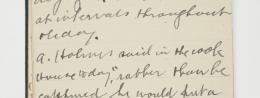 at intervals throughout
the day.
A. Holmes said in the cook
house to day, "rather than be
captured he would put a